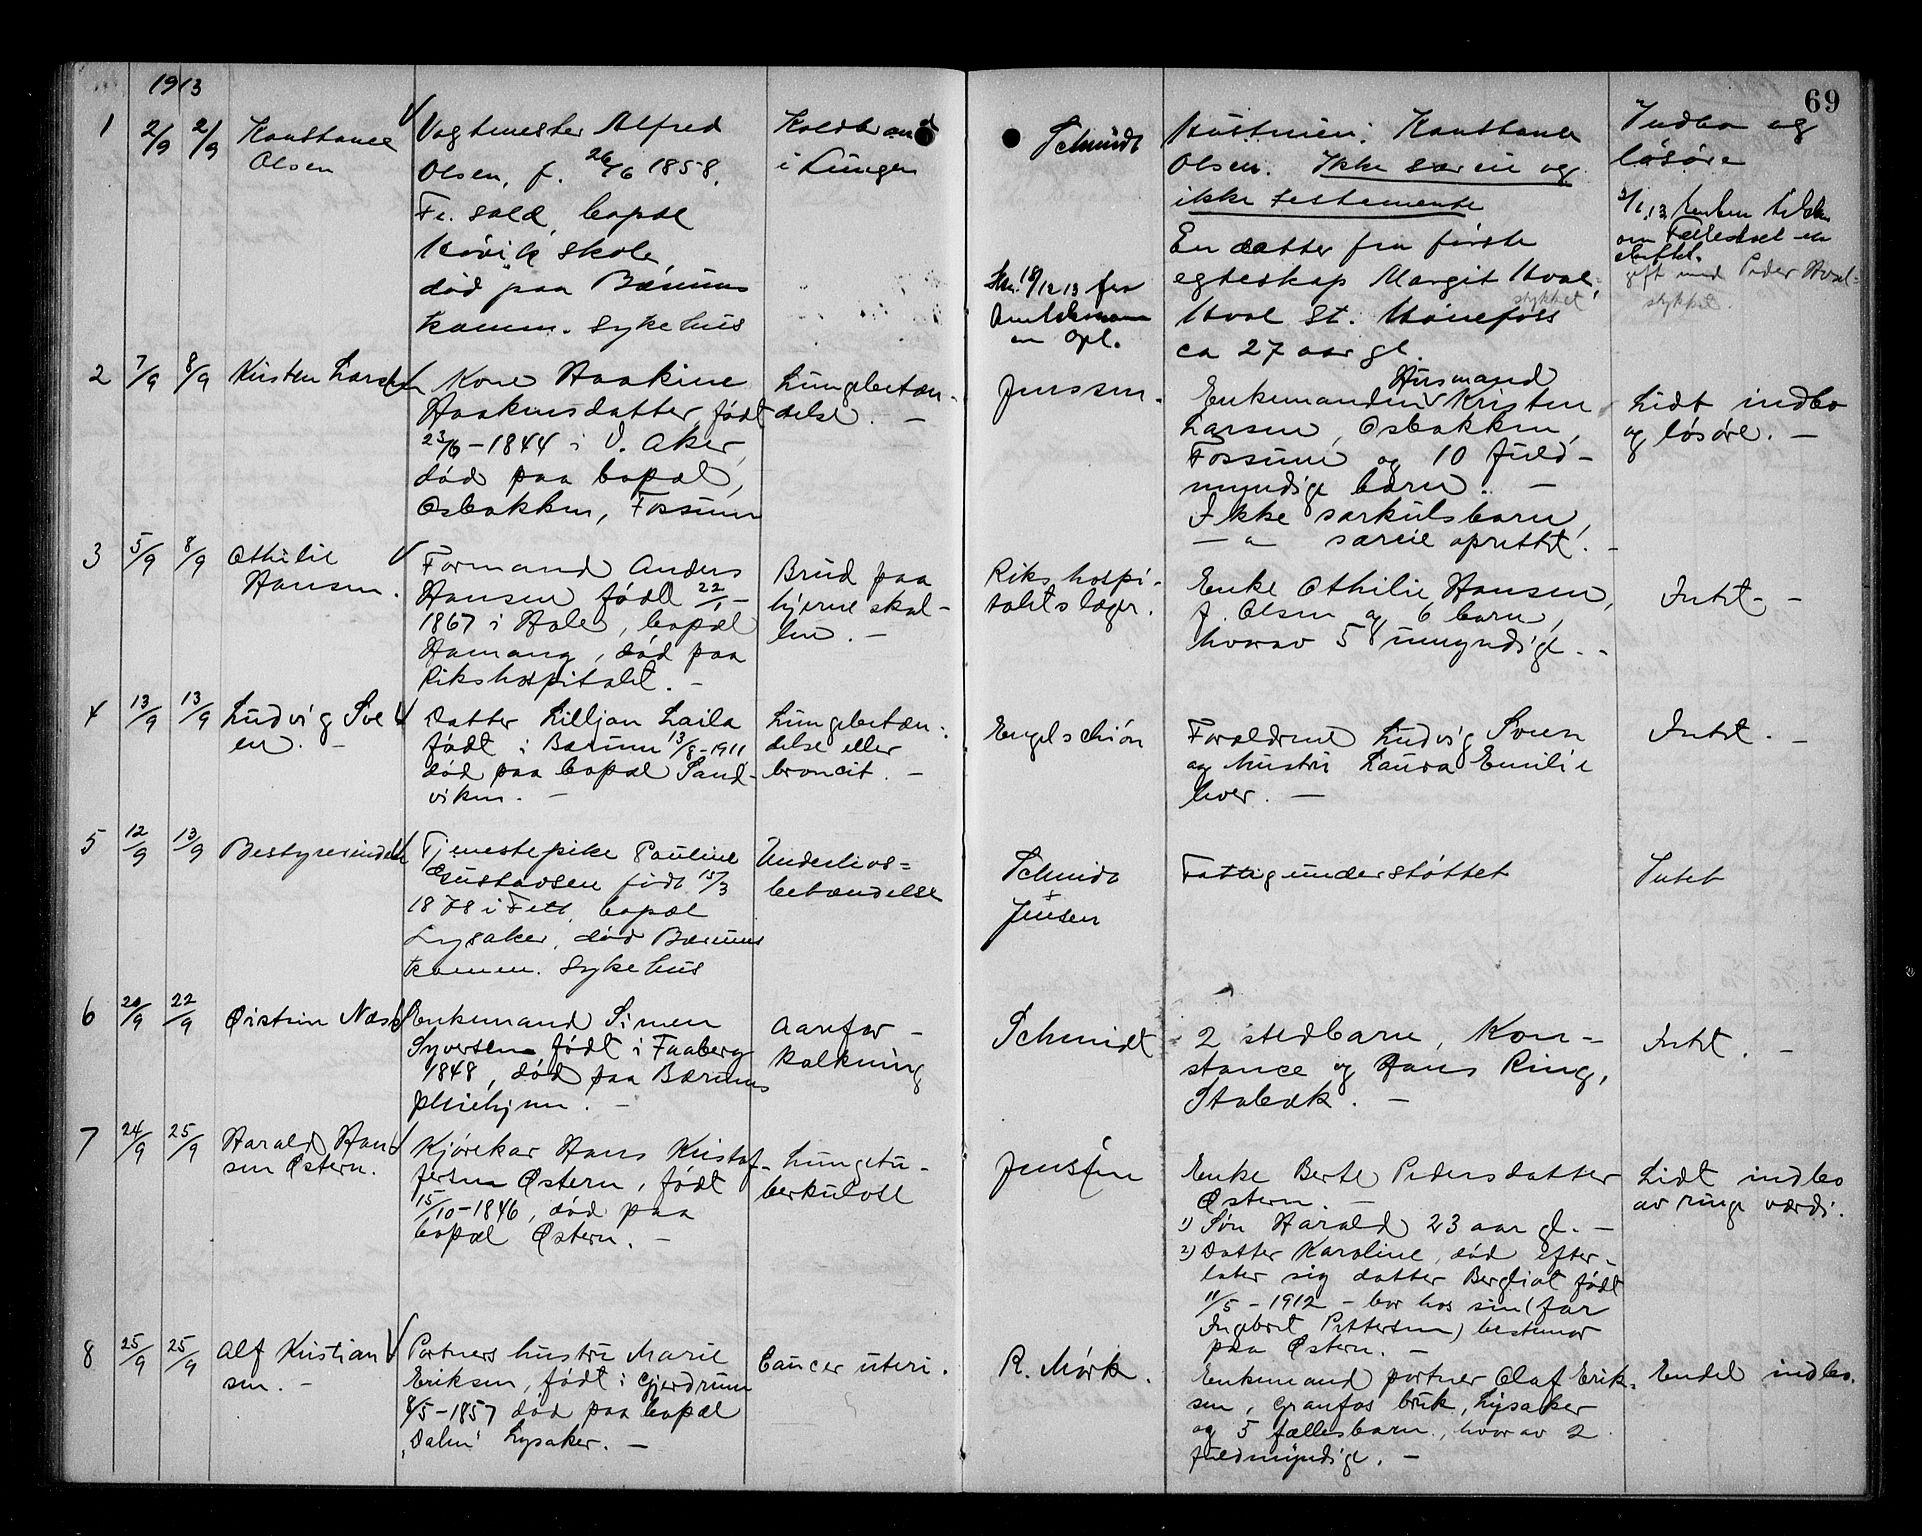 1913
69
1
2/9
2/9
Konstance
Olsen
Vagtmester Alfred
Olsen, f. 26/6 1858,
Fr. sald, bopæl
Høvik skole,
død paa Bærums
komm. sykehus
Koldbrand
i Lungen
Schmidt
Skr. 18/12 13 fra
om opl.
Hustruen: Konstance
Olsen. Ikke særeie og
ikke testamente
En datter fra første
egteskap Margit Hval-
stykket
Hval St. Hønefoss
ca 27 aar gl.
Indbo og
løsøre
gift med Peder Hval-
stykket.
2
7/9
8/9
Kristen Larsen
Kone Haakine
Haakensdatter født
23/6 - 1844 i V. Aker,
død paa bopæl,
Osbakken, Fossum
Lungebetæn-
delse. -
Jenssen.
Husmand
Enkemanden Kristen
Larsen, Osbakken,
Fossum og 10 fuld-
myndige barn. -
Ikke særkulsbarn,
- " - særeie oprettet. -
Lidt indbo
og løsøre. -
3
5/9
8/9
Othilie
Hansen.
Formand Anders
Hansen født 22/1 -
1867 i Hole, bopæl
Hamang, død paa
Rikshospitalet. -
Brud paa
hjerneskal-
len. -
Rikshospi-
talets læger.
Enke Othilie Hansen,
f. Olsen og 6 barn,
hvorav 5 umyndige. -
Intet -
4
13/9
13/9
Ludvig Sve
en. -
Datter Lilljan Laila
født i Bærum 13/8 - 1911
død paa bopæl Sand-
viken. -
Lungebetæn-
delse eller
broncit. -
Engelschiøn
Forældrene Ludvig Sveen
og hustru Laura Emilie
lever. -
Intet. -
5
12/9
13/9
Bestyrerinden
Tjenestepike Pauline
Gustavsen født 15/3
1878 i Fett, bopæl
Lysaker, død Bærums
komm. sykehus
Underlivs=
betændelse
Schmidt
+
Jensen
Fattigunderstøttet
Intet
6
20/9
22/9
Øistein Næss
Enkemand Simen
Syversen, født i Faaberg
1848, død paa Bærums
pleiehjem. -
Aarefor-
kalkning
Schmidt
2 stedbarn, Kon-
stance og Hans Ring,
Stabæk. -
Intet. -
7
24/9
25/9
Harald Han
sen Østern.
Kjørekar Hans Kristof-
fersen Østern, født
15/10 - 1846, død paa
bopæl Østern. -
Lungetu-
berkulose
Jenssen
Enke Berte Pedersdatter
Østern -
1) Søn Harald 23 aar gl. -
2) Datter Karoline, død efter-
later sig datter Bergliot født
11/5 - 1912 - bor hos sin (far
Ingebret Pettersen) bestemor
paa Østern. -
Lidt indbo
av ringe værdi.
8
25/9
25/9
Alf Kristian
sen. -
Portners hustru Marie
Eriksen, født i Gjerdrum
8/5 - 1857 død paa bopæl
"Dalen" Lysaker. -
Cancer uteri.
R. Mørk.
Enkemand portner Olaf Erik-
sen, Granfos bruk, Lysaker
og 5 fællesbarn, hvorav 2
fuldmyndige. -
Endel indbo.